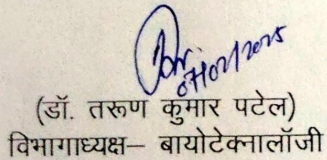 (डॉ. तरूण कुमार पटेल)
विभागाध्यक्ष– बायोटेक्नालॉजी